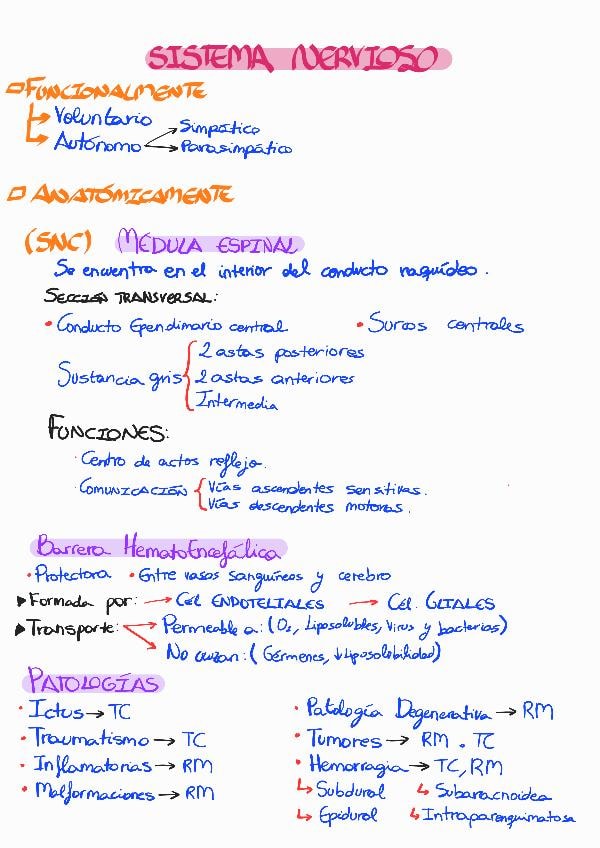 SISTEMA NERVIOSO
FUNCIONALMENTE
Voluntario
Autónomo
Simpático
Parasimpático
ANATÓMICAMENTE
(SNC) MÉDULA ESPINAL
Se encuentra en el interior del conducto raquídeo.
SECCIÓN TRANSVERSAL:
• Conducto Ependimario central • Surcos centrales
Sustancia gris
2 astas posteriores
2 astas anteriores
Intermedia
FUNCIONES:
· Centro de actos reflejo.
· COMUNICACIÓN
Vías ascendentes sensitivas.
Vías descendentes motoras.
Barrera HematoEncefálica
• Protectora • Entre vasos sanguíneos y cerebro
Formada por: → Cél ENDOTELIALES → Cél. GLIALES
Transporte: → Permeable a: (O₂, Liposolubles, Virus y bacterias)
No cruzan: (Gérmenes, ↓Liposolubilidad)
PATOLOGÍAS
• Ictus → TC
• Traumatismo → TC
• Inflamatorias → RM
• Malformaciones → RM
• Patología Degenerativa → RM
• Tumores → RM . TC
• Hemorragia → TC, RM
↳ Subdural ↳ Subaracnoidea
↳ Epidural ↳ Intraparenquimatosa